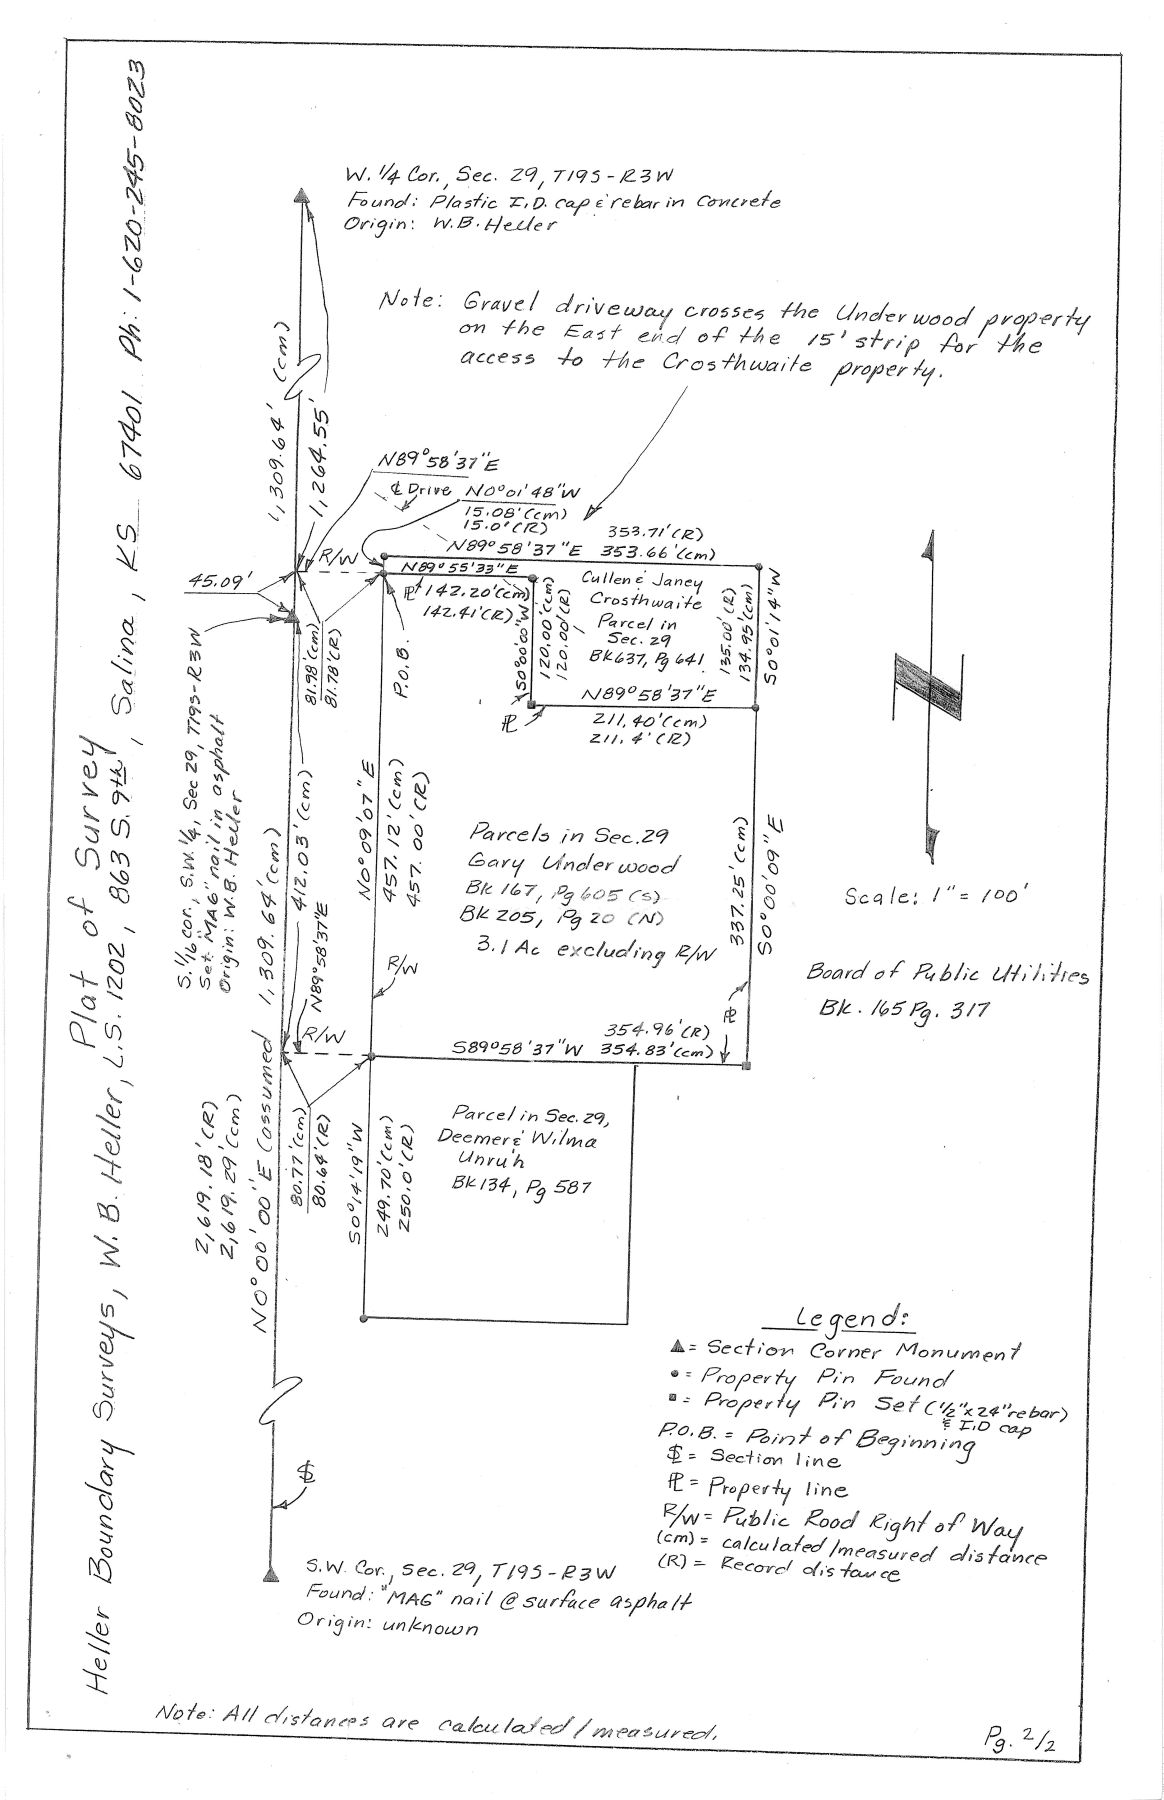 Plat of Survey
Heller Boundary Surveys, W. B. Heller, L.S. 1202, 863 S. 9th, Salina, KS 67401 Ph: 1-620-245-8023
W. 1/4 Cor., Sec. 29, T19S-R3W
Found: Plastic I.D. cap & rebar in Concrete
Origin: W.B. Heller
Note: Gravel driveway crosses the Underwood property
on the East end of the 15' strip for the
access to the Crosthwaite property.
1,309.64' (cm)
1,264.55'
N89°58'37"E
℄ Drive
N0°01'48"W
15.08'(cm)
15.0'(R)
353.71'(R)
N89°58'37"E 353.66'(cm)
R/W
N89°55'33"E
PL 142.20'(cm)
142.41'(R)
45.09'
81.98'(cm)
81.78'(R)
P.O.B.
S0°00'00"W
120.00'(cm)
120.00'(R)
Cullen & Janey
Crosthwaite
Parcel in
Sec. 29
BK637, Pg 641
135.00'(R)
134.95'(cm)
S0°01'14"W
N89°58'37"E
211.40'(cm)
211.4'(R)
PL
S. 1/16 cor., S.W. 1/4, Sec 29, T19S-R3W
Set "MAG" nail in asphalt
Origin: W.B. Heller
412.03'(cm)
N89°58'37"E
N0°09'07"E
457.12'(cm)
457.00'(R)
Parcels in Sec. 29
Gary Underwood
Bk 167, Pg 605 (S)
BK 205, Pg 20 (N)
3.1 Ac excluding R/W
337.25'(cm)
S0°00'09"E
Scale: 1" = 100'
Board of Public Utilities
Bk. 165 Pg. 317
R/W
PL
R/W
354.96'(R)
S89°58'37"W 354.83'(cm)
80.77'(cm)
80.64'(R)
2,619.18'(R)
2,619.29'(cm)
N0°00'00"E (assumed 1,309.64'(cm)
S0°14'19"W
249.70'(cm)
250.0'(R)
Parcel in Sec. 29,
Deemer & Wilma
Unruh
BK 134, Pg 587
Legend:
▲ = Section Corner Monument
● = Property Pin Found
■ = Property Pin Set (1/2"x24" rebar)
& I.D cap
P.O.B. = Point of Beginning
SL = Section line
PL = Property line
R/W = Public Road Right of Way
(cm) = calculated/measured distance
(R) = Record distance
SL
S.W. Cor., Sec. 29, T19S-R3W
Found: "MAG" nail @ surface asphalt
Origin: unknown
Note: All distances are calculated/measured.
Pg. 2/2